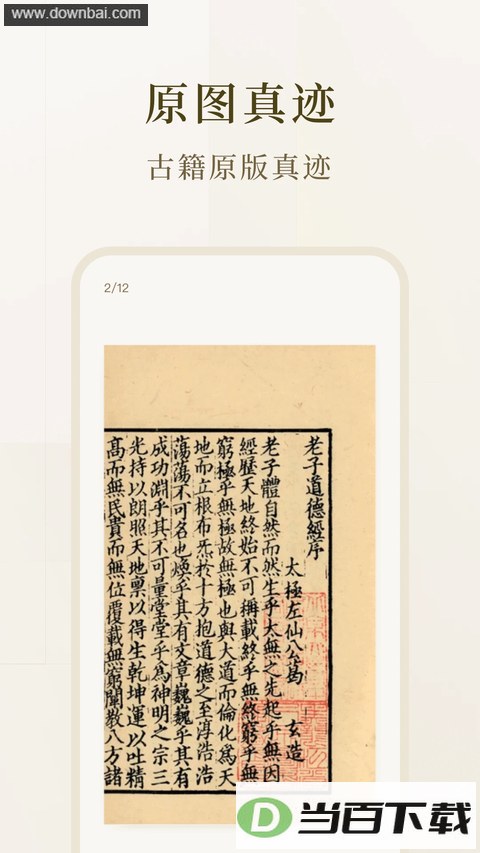 www.downbai.com
原图真迹
古籍原版真迹
2/12
老子道德經序
太極左仙公葛 玄造
老子體自然而然生乎太無之先起乎無因
經歷天地終始不可稱載終乎無終窮乎無
窮極乎無極故無極也與大道而倫化爲天
地而立根布炁於十方抱道德之至淳浩浩
蕩蕩不可名也煥乎其有文章巍巍乎其有
成功淵乎其不可量堂堂乎爲神明之宗三
光持以朗照天地稟以得生乾坤運以吐精
高而無民貴而無位覆載無窮闡教八方諸
D 当百下载